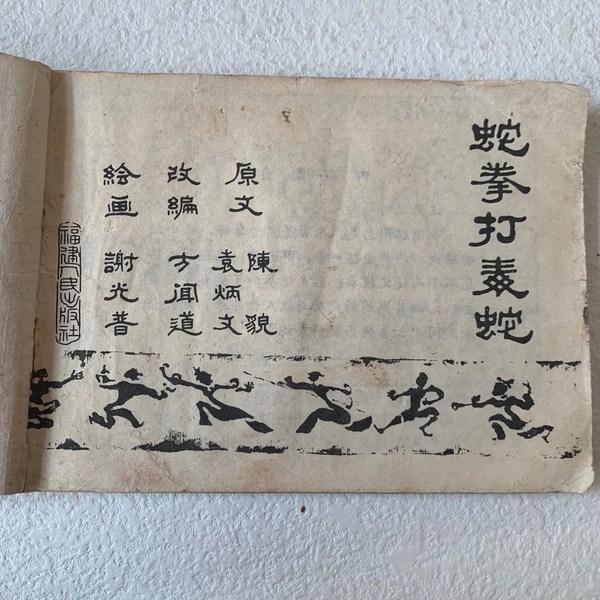 蛇拳打毒蛇
原文 陳貌
袁炳文
改編 方聞道
绘画 謝光普
福建人民出版社